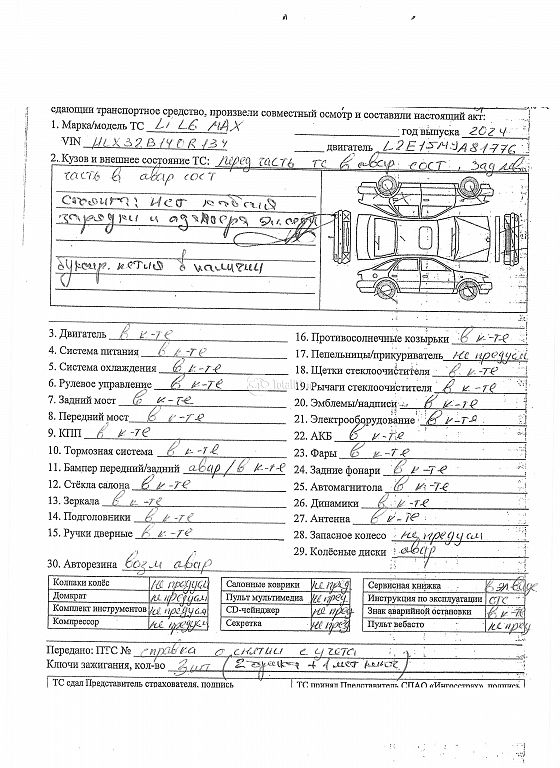 сдающий транспортное средство, произвели совместный осмотр и составили настоящий акт:
1. Марка/модель ТС Li L6 MAX год выпуска 2024
VIN HLX32B140R134 двигатель L2E15M9A81776
2. Кузов и внешнее состояние ТС: перед часть ТС в авар сост, зад лев
часть в авар сост
нет кабеля
зарядки и адаптера
буксир. петля в наличии
3. Двигатель в к-те
4. Система питания в к-те
5. Система охлаждения в к-те
6. Рулевое управление в к-те
7. Задний мост в к-те
8. Передний мост в к-те
9. КПП в к-те
10. Тормозная система в к-те
11. Бампер передний/задний авар / в к-те
12. Стёкла салона в к-те
13. Зеркала в к-те
14. Подголовники в к-те
15. Ручки дверные в к-те
16. Противосолнечные козырьки в к-те
17. Пепельницы/прикуриватель не предусм
18. Щетки стеклоочистителя в к-те
19. Рычаги стеклоочистителя в к-те
20. Эмблемы/надписи в к-те
21. Электрооборудование в к-те
22. АКБ в к-те
23. Фары в к-те
24. Задние фонари в к-те
25. Автомагнитола в к-те
26. Динамики в к-те
27. Антенна в к-те
28. Запасное колесо не предусм
29. Колёсные диски авар
30. Авторезина возм авар
Колпаки колёс не предусм
Домкрат не предусм
Комплект инструментов не предусм
Компрессор не предусм
Салонные коврики не пред
Пульт мультимедиа не пред
CD-чейнджер не пред
Секретка не пред
Сервисная книжка
Инструкция по эксплуатации
Знак аварийной остановки в к-те
Пульт вебасто не пред
Передано: ПТС № справка о снятии с учета
Ключи зажигания, кол-во 3 шт
ТС сдал Представитель страхователя, подпись
ТС принял Представитель СПАО «Ингосстрах», подпись